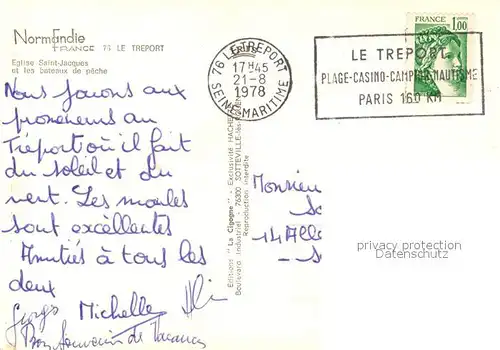 Normandie
FRANCE 76 LE TREPORT
Eglise Saint-Jacques
et les bateaux de pêche
FRANCE 1,00
76 LE TREPORT
17H45
21-8
1978
SEINE-MARITIME
LE TREPORT
PLAGE-CASINO-CAMPING-NAUTISME
PARIS 160 KM
Nous jouons aux
promeneurs au
Tréport où il fait
du soleil et du
vent. Les moules
sont excellentes
Amitiés à tous les
deux
Michelle
Bon Souvenir de Vacances
Editions "La Cigogne" - Exclusivité HACHE
Boulevard Industriel - 76300 SOTTEVILLE
Reproduction interdite
Monsieur
14 Alle
privacy protection
Datenschutz